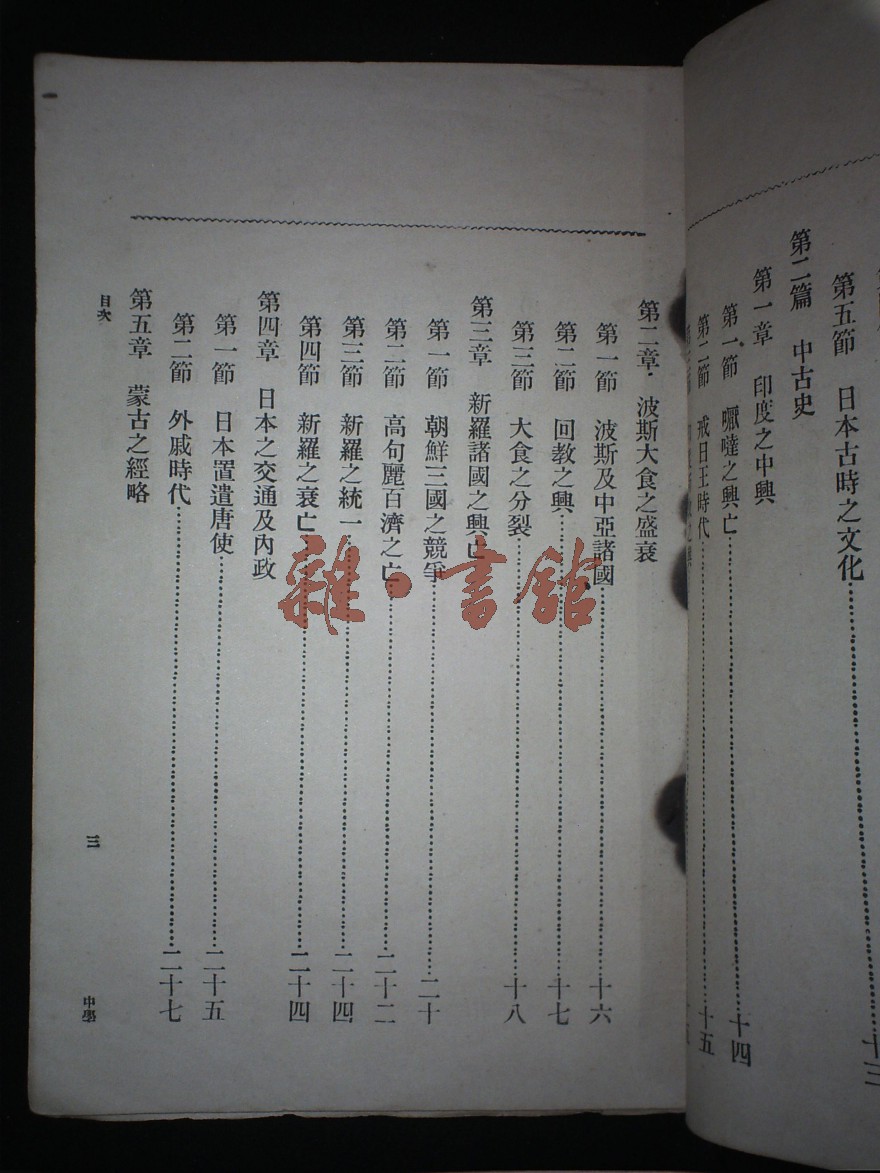 第五節　日本古時之文化……十三
第二篇　中古史
第一章　印度之中興
第一節　嚈噠之興亡……十四
第二節　戒日王時代……十五
第二章　波斯大食之盛衰
第一節　波斯及中亞諸國……十六
第二節　回教之興……十七
第三節　大食之分裂……十八
第三章　新羅諸國之興亡
第一節　朝鮮三國之競爭……二十
第二節　高句麗百濟之亡……二十二
第三節　新羅之統一……二十四
第四節　新羅之衰亡……二十四
第四章　日本之交通及內政
第一節　日本置遣唐使……二十五
第二節　外戚時代……二十七
第五章　蒙古之經略
目次
三
中學
雜·書館